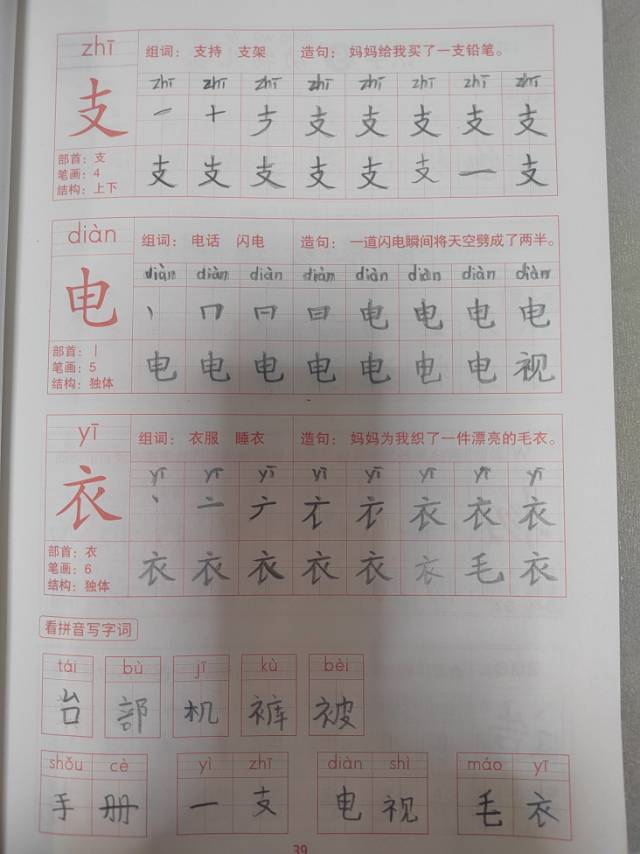 zhī 组词：支持 支架 造句：妈妈给我买了一支铅笔。
zhī zhī zhī zhī zhī zhī zhī zhī
支 一 十 支 支 支 支 支
部首：支
笔画：4
结构：上下
支 支 支 支 支 支 一 支
diàn 组词：电话 闪电 造句：一道闪电瞬间将天空劈成了两半。
diàn diàn diàn diàn diàn diàn diàn diàn
电 丨 冂 日 日 电 电 电 电
部首：丨
笔画：5
结构：独体
电 电 电 电 电 电 电 视
yī 组词：衣服 睡衣 造句：妈妈为我织了一件漂亮的毛衣。
yī yī yī yī yī yī yī yī
衣 丶 亠 衣 衣 衣 衣
部首：衣
笔画：6
结构：独体
衣 衣 衣 衣 衣 衣 毛 衣
看拼音写字词
tái bù jī kù bèi
台 部 机 裤 被
shǒu cè yì zhī diàn shì máo yī
手 册 一 支 电 视 毛 衣
39